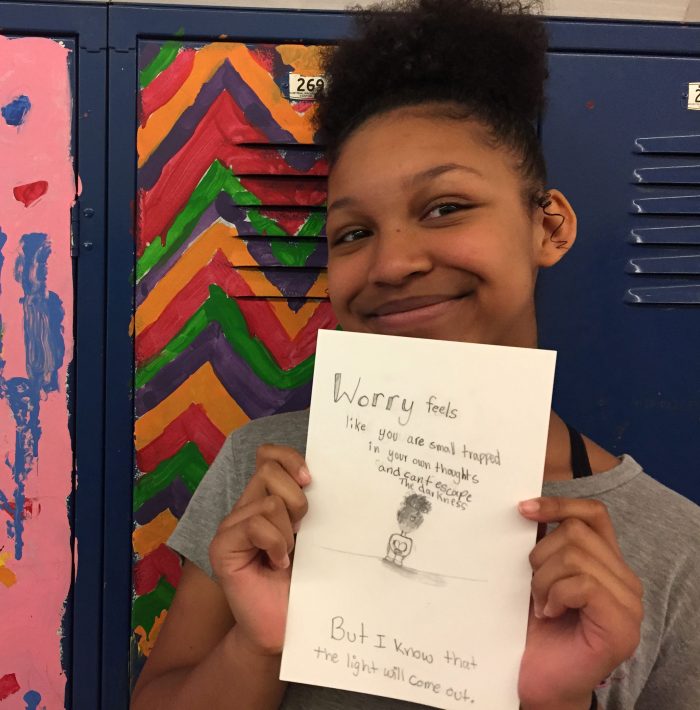 269
Worry feels
like you are small trapped
in your own thoughts
and cant escape
The darkness
But I know that
the light will come out.